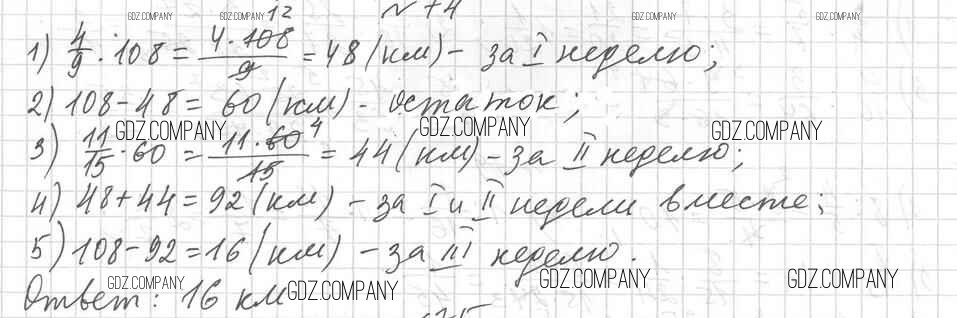 GDZ.COMPANY GDZ.COMPANY GDZ.COMPANY GDZ.COMPANY
№ 74
1) 4/9 · 108 = 4·108/9 12 = 48 (км) – за I неделю;
2) 108 – 48 = 60 (км) – остаток;
GDZ.COMPANY GDZ.COMPANY GDZ.COMPANY
3) 11/15 · 60 = 11·60/15 4 = 44 (км) – за II неделю;
4) 48 + 44 = 92 (км) – за I и II недели вместе;
5) 108 – 92 = 16 (км) – за III неделю.
GDZ.COMPANY GDZ.COMPANY GDZ.COMPANY
Ответ: 16 км
GDZ.COMPANY